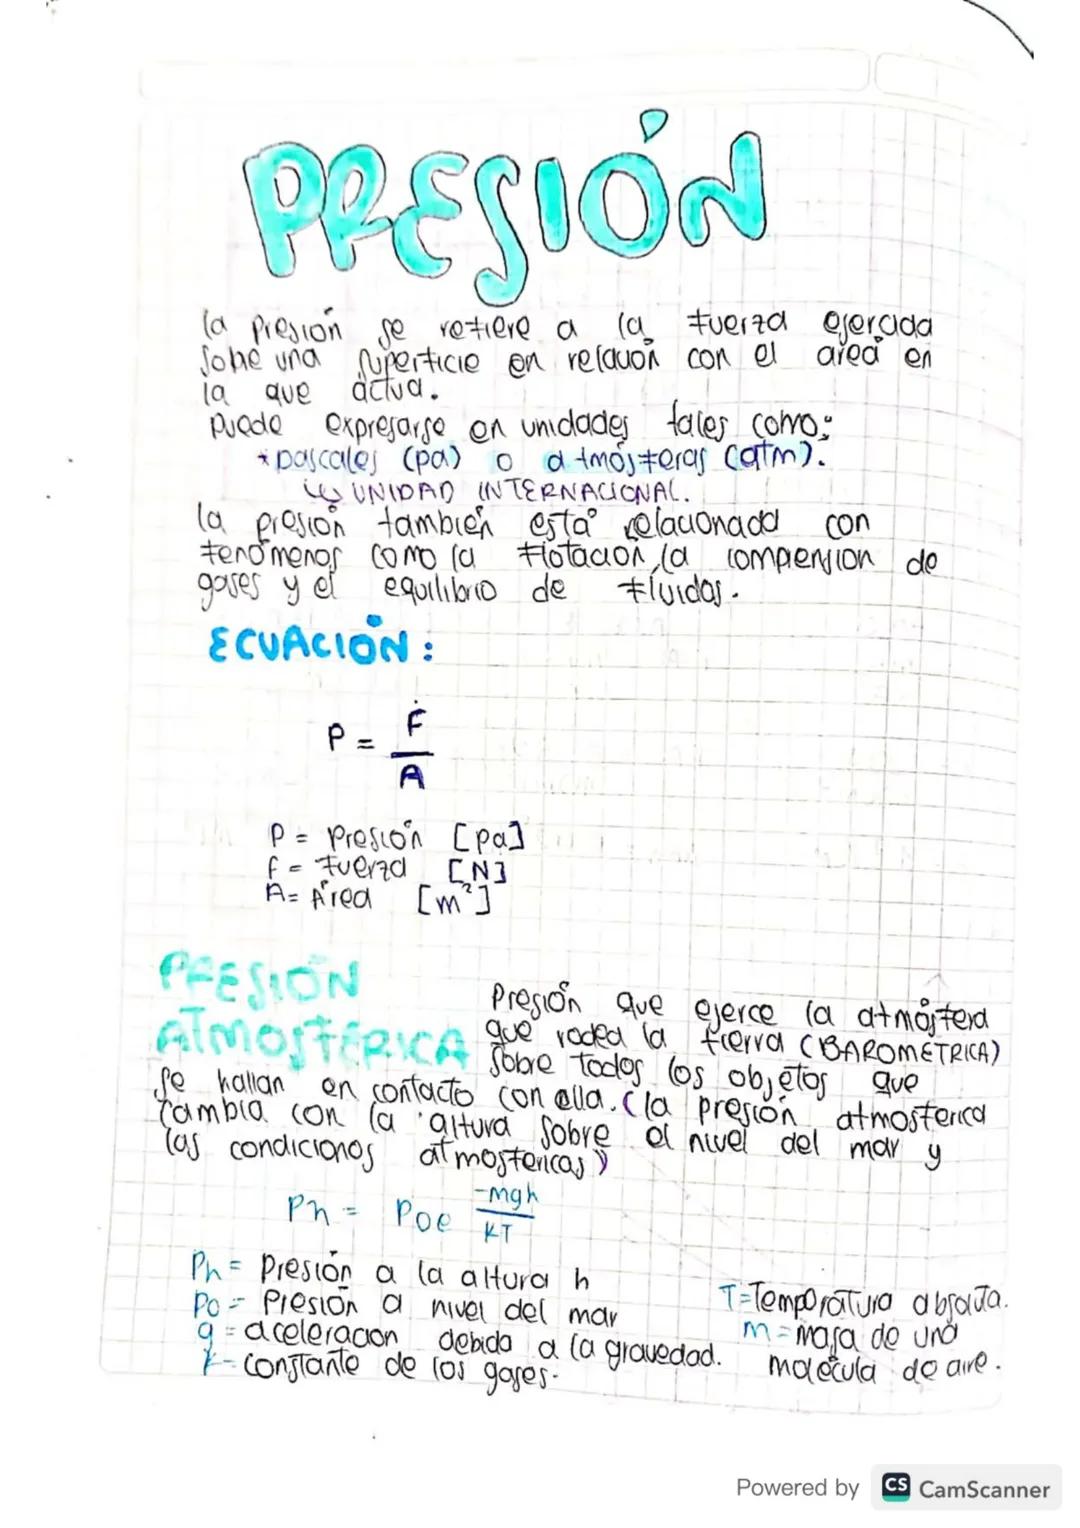 PRESIÓN
la Presión se refiere a la fuerza ejercida
sobre una superficie en relación con el area en
la que actua.
puede expresarse en unidades tales como:
*pascales (pa) o atmósferas (atm).
↳ UNIDAD INTERNACIONAL.
la presión también está relacionada con
fenómenos como la flotación, la compension de
gases y el equilibrio de fluidos.
ECUACIÓN:
P = F
A
P = Presión [pa]
f = fuerza [N]
A = Área [m²]
PRESIÓN
ATMOSFÉRICA
Presión que ejerce la atmósfera
que rodea la tierra (BAROMETRICA)
sobre todos los objetos que
se hallan en contacto con ella. (la presión atmosferica
cambia con la altura sobre el nivel del mar y
las condiciones atmosfericas)
Ph = Poe -mgh
KT
Ph = Presión a la altura h
Po = Presión a nivel del mar
g = aceleracion debida a la gravedad.
k = constante de los gases.
T = Temperatura absoluta.
m = masa de una
molécula de aire.
Powered by CS CamScanner